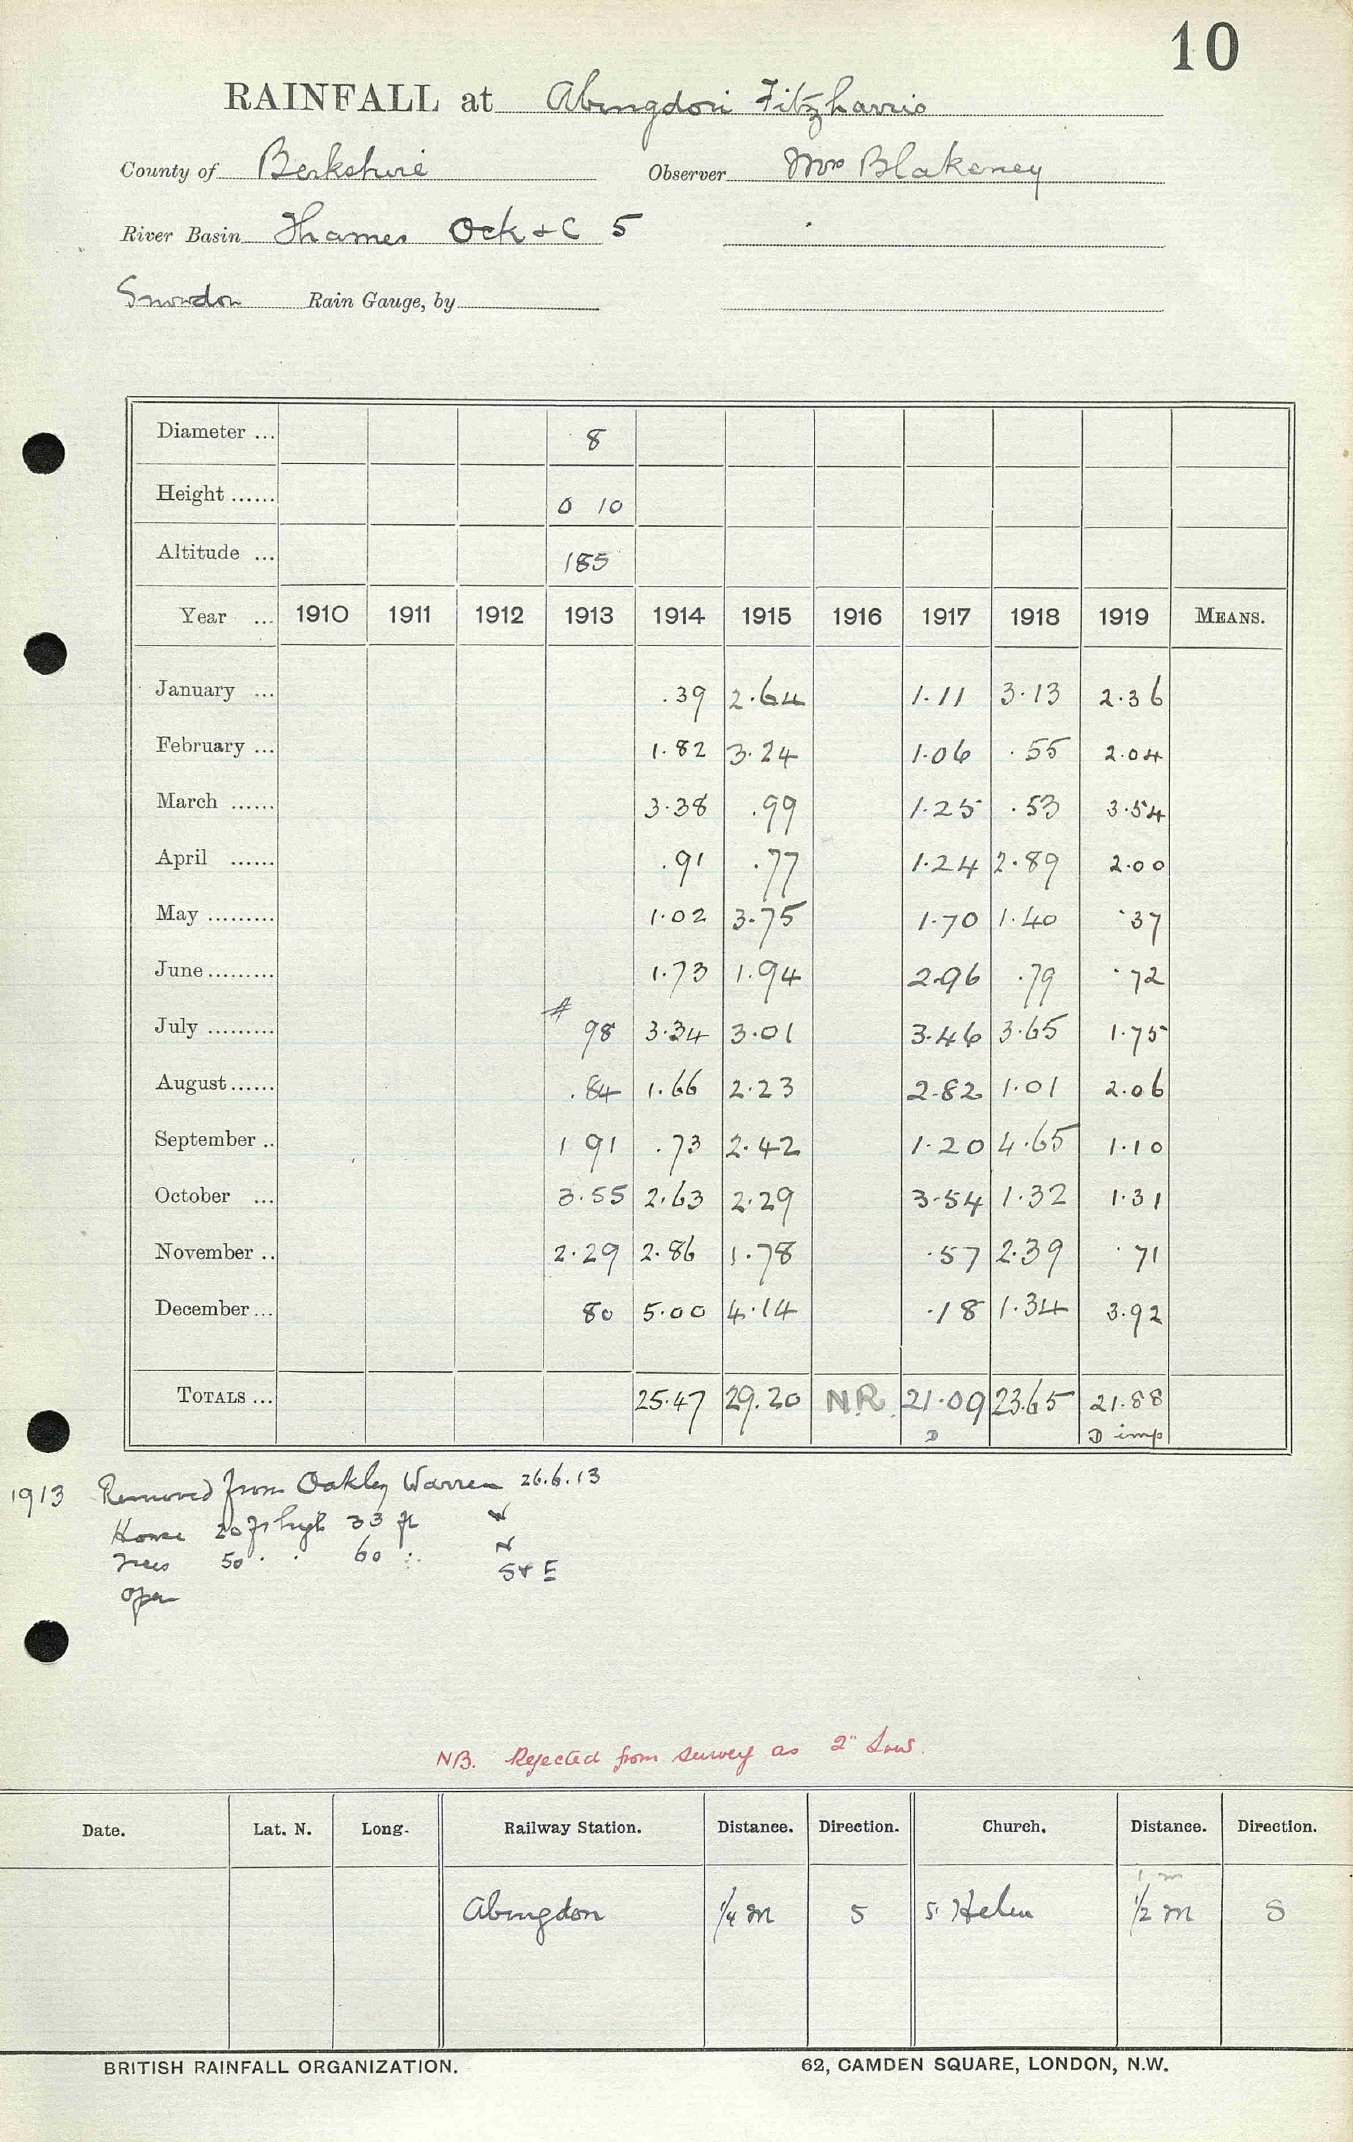 10
RAINFALL at Abingdon Fitzharris
County of Berkshire Observer Mrs Blakeney
River Basin Thames Ock + C 5
Snowdon Rain Gauge, by
Diameter ... 8
Height ...... 0 10
Altitude ... 185
Year ... 1910 1911 1912 1913 1914 1915 1916 1917 1918 1919 MEANS.
January ... .39 2.64 1.11 3.13 2.36
February ... 1.82 3.24 1.06 .55 2.04
March ...... 3.38 .99 1.25 .53 3.54
April ...... .91 .77 1.24 2.89 2.00
May ......... 1.02 3.75 1.70 1.40 .37
June ......... 1.73 1.94 2.96 .79 .72
July ......... # 98 3.34 3.01 3.46 3.65 1.75
August ...... .84 1.66 2.23 2.82 1.01 2.06
September .. 1 91 .73 2.42 1.20 4.65 1.10
October ... 3.55 2.63 2.29 3.54 1.32 1.31
November .. 2.29 2.86 1.78 .57 2.39 .71
December ... 80 5.00 4.14 .18 1.34 3.92
TOTALS ... 25.47 29.20 N.R. 21.09 23.65 21.88
D D imp
1913 Removed from Oakley Warren 26.6.13
House 20 ft high 33 ft W
Trees 50 " " 60 " N
Open S + E
NB. Rejected from survey as 2" low.
Date. Lat. N. Long. Railway Station. Distance. Direction. Church. Distance. Direction.
Abingdon 1/4 m S S. Helen 1/2 m S
BRITISH RAINFALL ORGANIZATION. 62, CAMDEN SQUARE, LONDON, N.W.